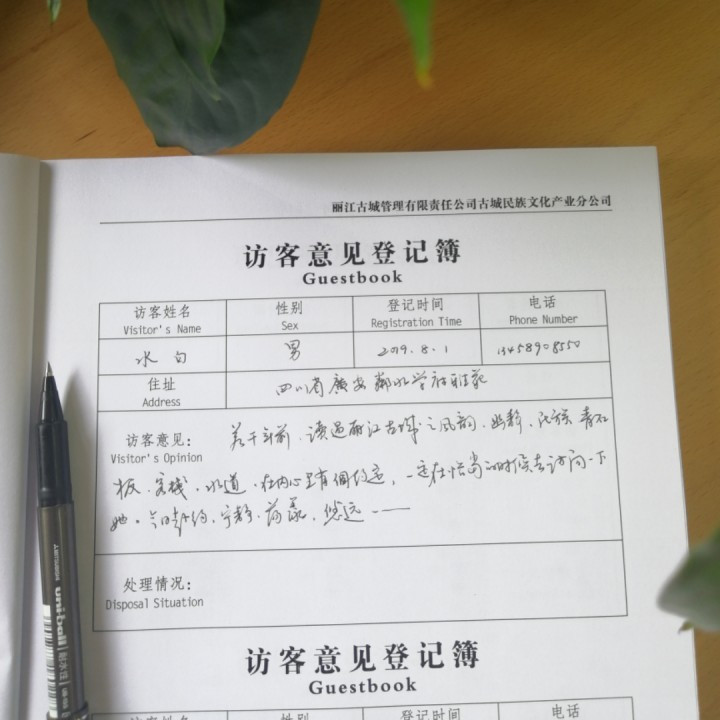 丽江古城管理有限责任公司古城民族文化产业分公司
访客意见登记簿
Guestbook
访客姓名 性别 登记时间 电话
Visitor's Name Sex Registration Time Phone Number
水白 男 2019.8.1 13458908550
住址 四川省廣安鄰水学府雅苑
Address
访客意见： 若干年前，读过丽江古城之风韵，幽静，民族，青石
Visitor's Opinion
板，客栈，水道，在内心里有個约定，一定在恰当的时候去访问一下
她。今日赴约，宁静，悠远——
处理情况：
Disposal Situation
访客意见登记簿
Guestbook
访客姓名 性别 登记时间 电话
uni-ball
MITSUBISHI
耐水性